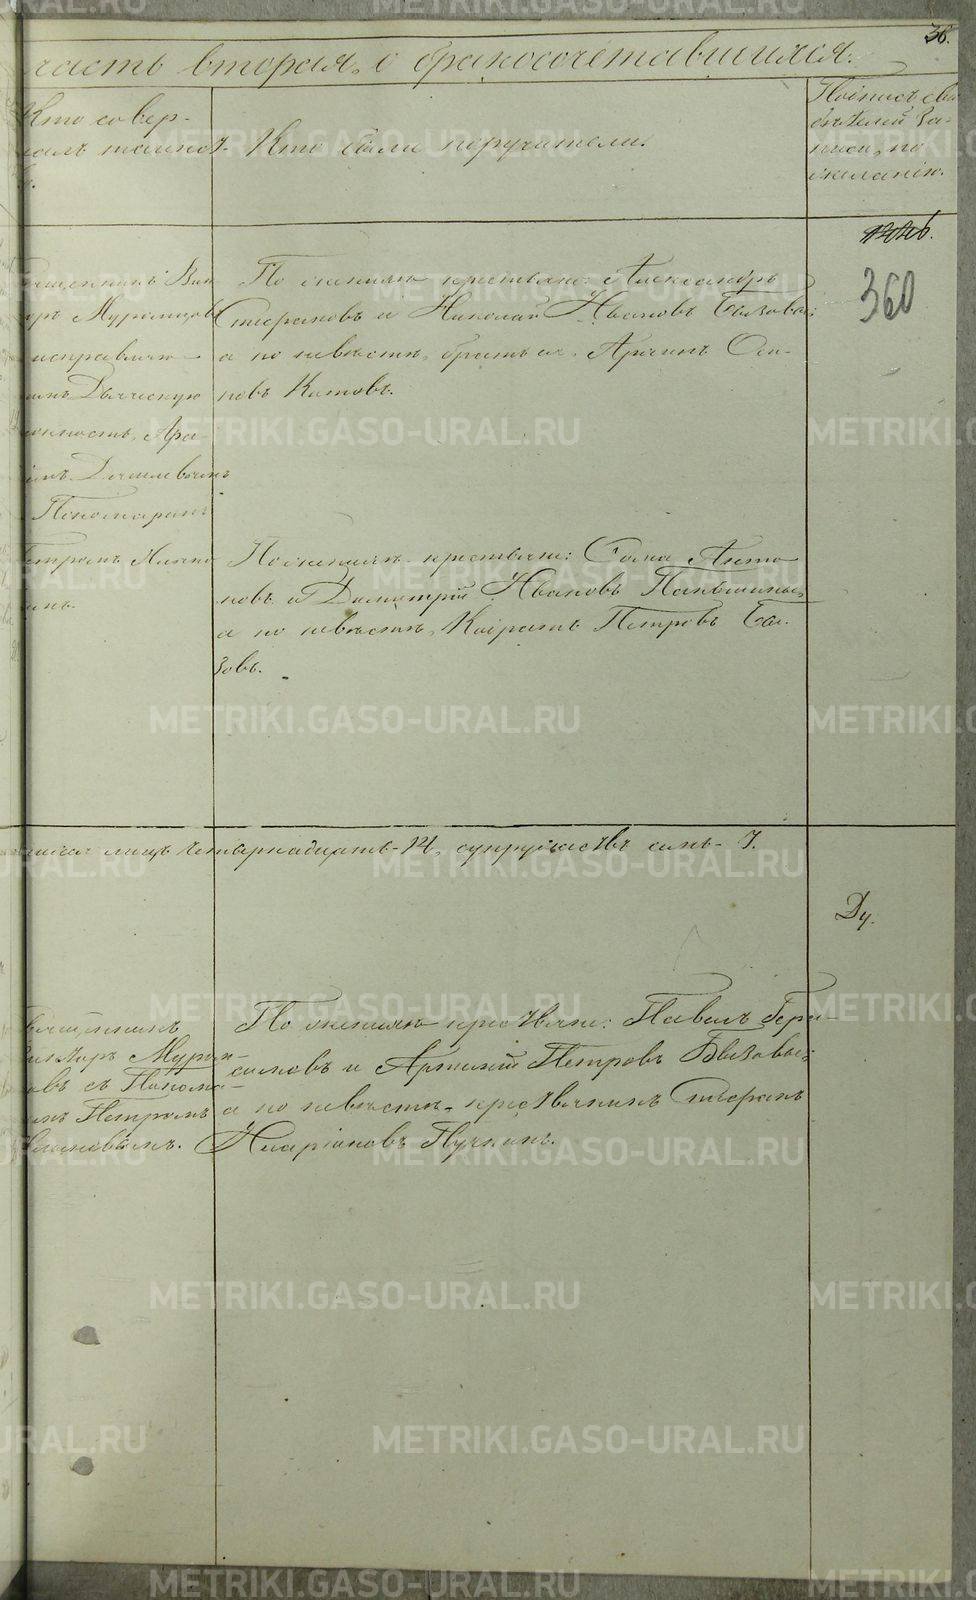 36.
часть вторая, о бракосочетавшихся.
Кто совер-
шалъ таинст-
Кто были поручатели.
Подпись сви
дѣтелей за-
писи, по
желанію.
360
Священникъ Вик
торъ Муромцовъ
исправляю-
Дьяческую
должность, Ара
Пономаремъ
Петромъ
По женихѣ крестьяне: Александръ
Стефановъ и Николай Ивановъ Бызовы;
а по невѣстѣ, братъ ея, Арсеній Оси-
повъ Котовъ.
По женихѣ крестьяне: Сома Анто
новъ и Димитрій Ивановъ Паньшины,
а по невѣстѣ, Кодратъ Петровъ Бы-
зовъ.
лицъ четырнадцать-14, супружествъ семь-7.
Ду.
Священникъ
Викторъ Муром-
цовъ съ Понома-
ремъ Петромъ
По женихѣ крестьяне: Павелъ Гера-
симовъ и Артемій Петровъ Бызовы;
а по невѣстѣ-крестьянинъ Стефанъ
Иларіоновъ Пучкинъ.
METRIKI.GASO-URAL.RU